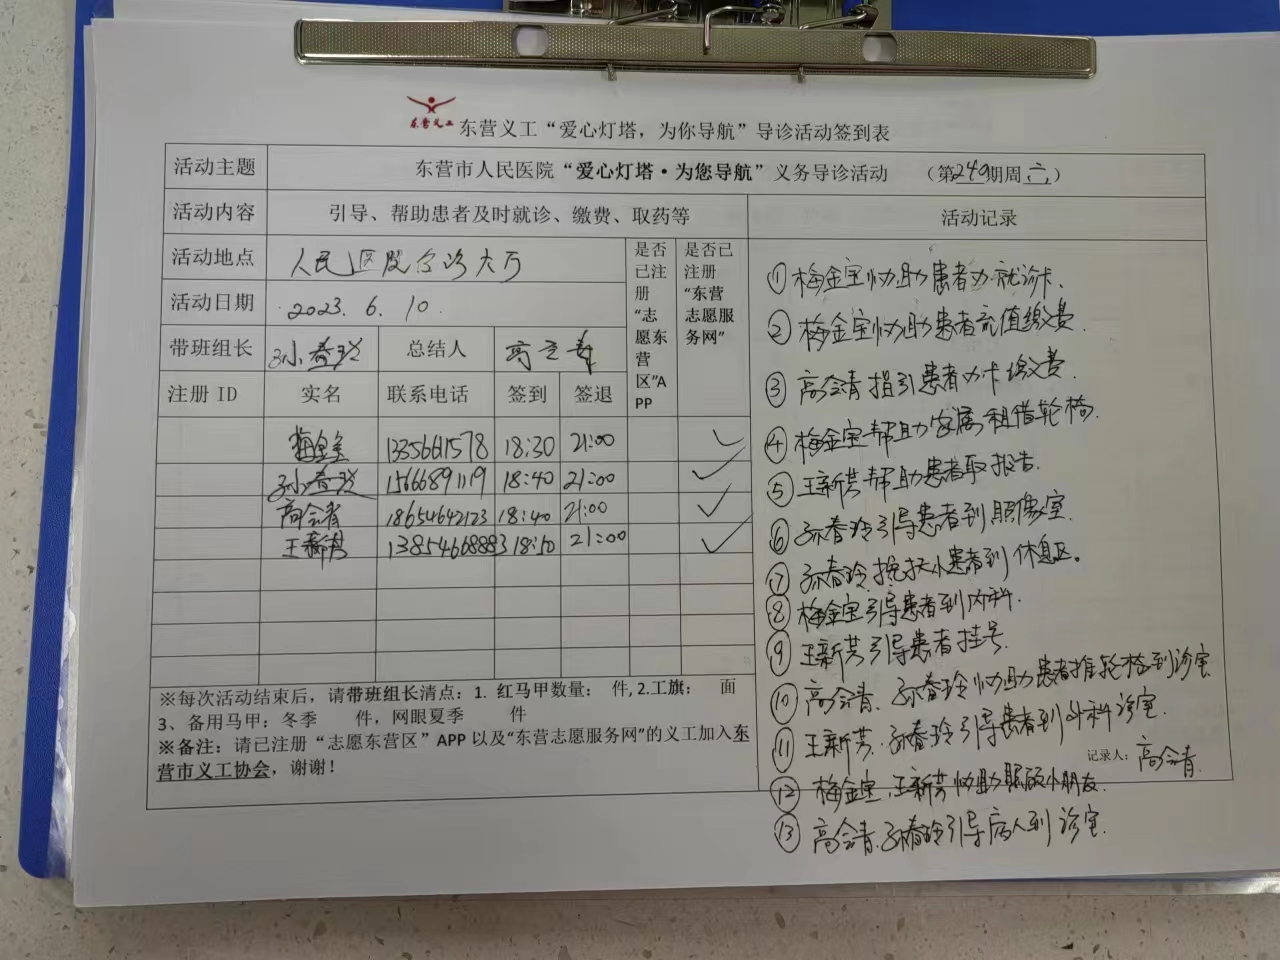 东营义工
东营义工“爱心灯塔，为你导航”导诊活动签到表
活动主题 东营市人民医院“爱心灯塔·为您导航”义务导诊活动 （第249期周六）
活动内容 引导、帮助患者及时就诊、缴费、取药等 活动记录
活动地点 人民医院门诊大厅
是否已注册“志愿东营区”APP
是否已注册“东营志愿服务网”
活动日期 2023. 6. 10.
带班组长 孙春玲 总结人
注册 ID 实名 联系电话 签到 签退
梅金宝 1335661578 18:30 21:00 ✓
孙春玲 15666891119 18:40 21:00 ✓
高会青 18654642123 18:40 21:00 ✓
王新芳 13854668883 18:50 21:00 ✓
※每次活动结束后，请带班组长清点：1. 红马甲数量： 件, 2.工旗： 面
3、备用马甲：冬季 件，网眼夏季 件
※备注：请已注册“志愿东营区”APP 以及“东营志愿服务网”的义工加入东
营市义工协会，谢谢！
① 梅金宝协助患者办就诊卡.
② 梅金宝协助患者充值缴费.
③ 高会青指引患者办卡缴费.
④ 梅金宝帮助家属租借轮椅.
⑤ 王新芳帮助患者取报告.
⑥ 孙春玲引导患者到照像室.
⑦ 孙春玲搀扶小患者到休息区。
⑧ 梅金宝引导患者到内科.
⑨ 王新芳引导患者挂号.
⑩ 高会青、孙春玲协助患者推轮椅到诊室.
⑪ 王新芳、孙春玲引导患者到外科诊室.
记录人：高会青.
⑫ 梅金宝、王新芳协助照顾小朋友.
⑬ 高会青、孙春玲引导病人到诊室.